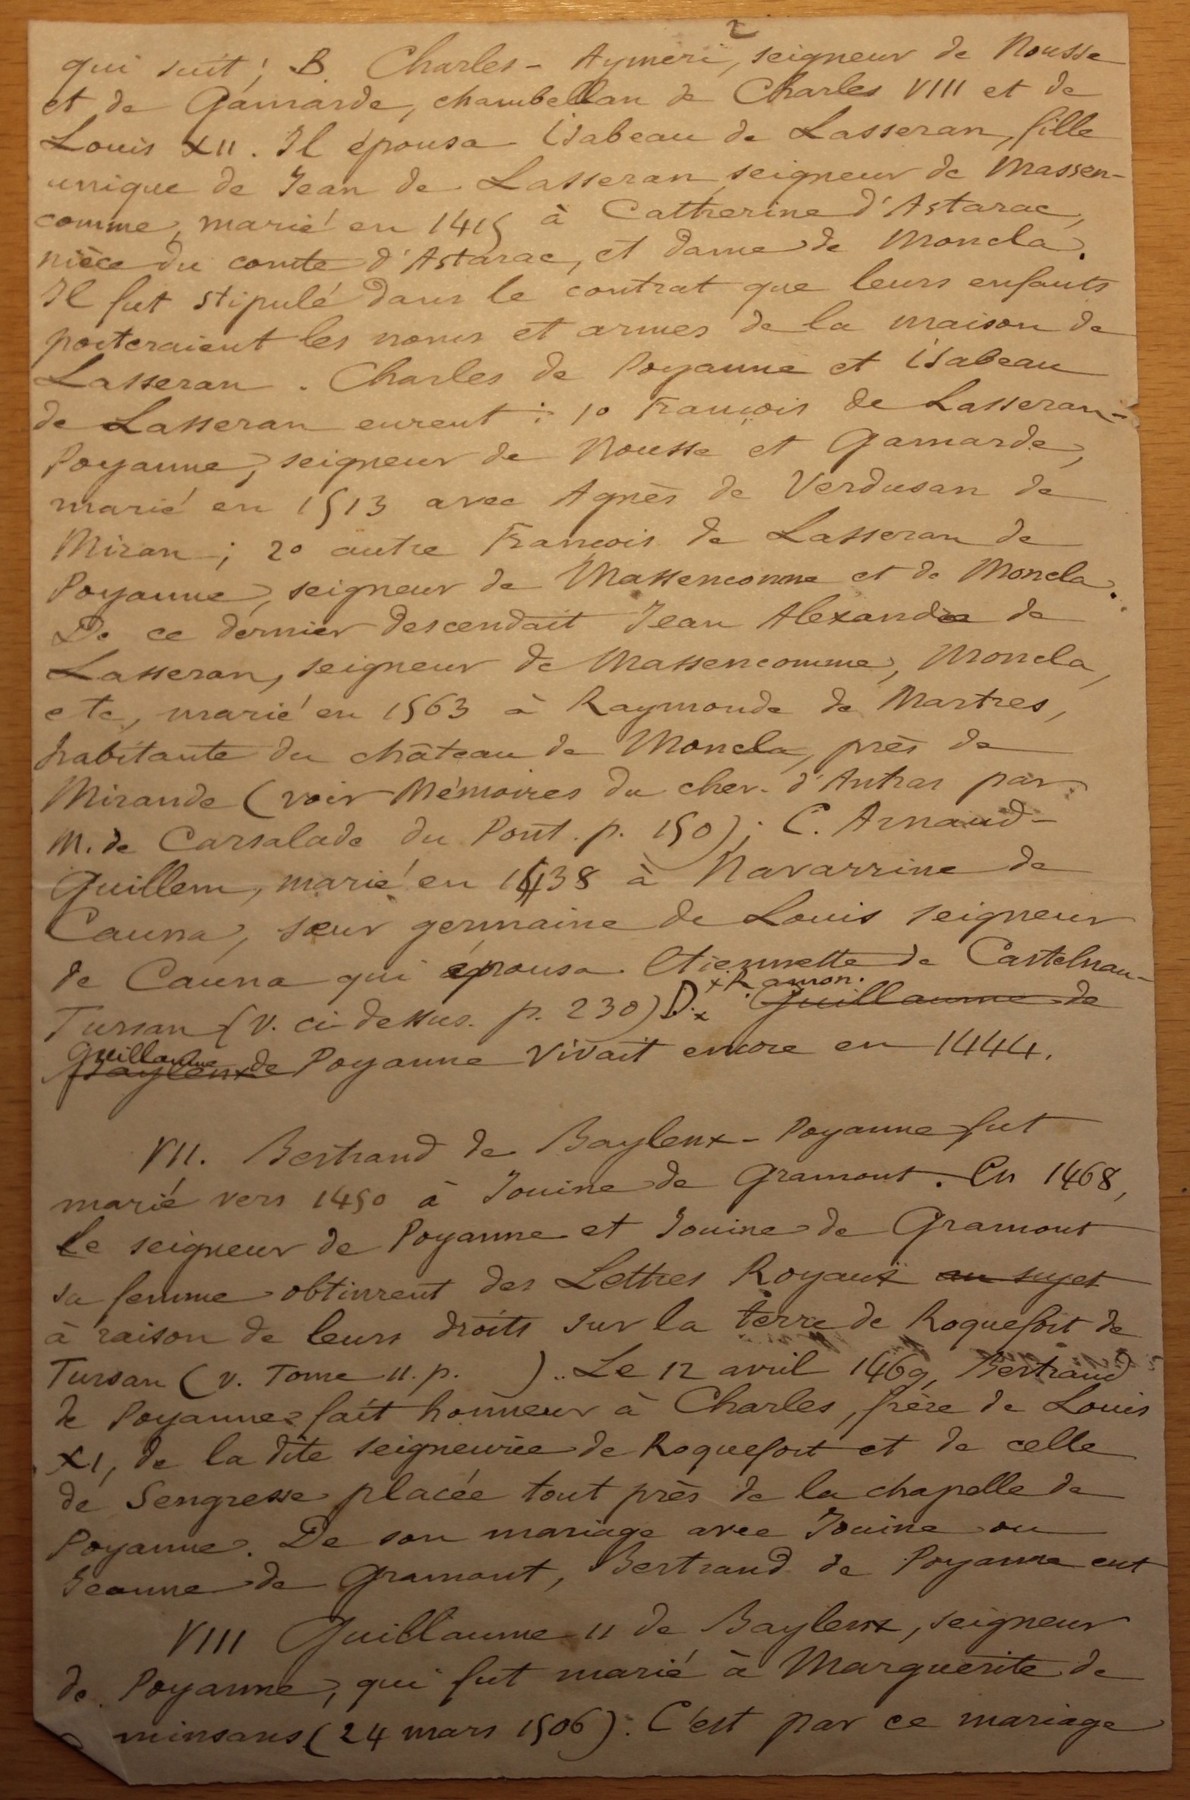 2
qui suit; B. Charles-Aymeri, seigneur de Nousse
et de Gamarde, chambellan de Charles VIII et de
Louis XII. Il épousa Isabeau de Lasseran, fille
unique de Jean de Lasseran seigneur de Massen-
comme, marié en 1415 à Catherine d'Astarac,
nièce du comte d'Astarac, et dame de Moncla.
Il fut stipulé dans le contrat que leurs enfants
porteraient les noms et armes de la maison de
Lasseran. Charles de Poyanne et Isabeau
de Lasseran eurent: 1º François de Lasseran-
Poyanne, seigneur de Nousse et Gamarde,
marié en 1513 avec Agnès de Verdusan de
Miran; 2º autre François de Lasseran de
Poyanne, seigneur de Massencomme et de Moncla.
De ce dernier descendait Jean Alexandre de
Lasseran, seigneur de Massencomme, Moncla,
etc, marié en 1563 à Raymonde de Martres,
habitante du château de Moncla, près de
Mirande (voir Mémoires du cher. d'Antras par
M. de Carsalade du Pont. p. 150); C. Arnaud-
Guillem, marié en 1438 à Navarrine de
Cauna, sœur germaine de Louis seigneur
de Cauna qui épousa Etiennette de Castelnau-
Tursan (v. ci-dessus. p. 230) D. x Ramon. Guillaume de
Guillaume Baylenx de Poyanne vivait encore en 1444.
VII. Bertrand de Baylenx-Poyanne fut
marié vers 1450 à Jouine de Gramont. En 1468,
le seigneur de Poyanne et Jouine de Gramont
sa femme obtinrent des Lettres Royaux au sujet
à raison de leurs droits sur la terre de Roquefort de
Tursan (v. Tome II. p. ). Le 12 avril 1469, Bertrand
de Poyanne fait honneur à Charles, frère de Louis
XI, de la dite seigneurie de Roquefort et de celle
de Sengresse placée tout près de la chapelle de
Poyanne. De son mariage avec Jouine ou
Jeanne de Gramont, Bertrand de Poyanne eut
VIII Guillaume II de Baylenx, seigneur
de Poyanne, qui fut marié à Marguerite de
minsans (24 mars 1506). C'est par ce mariage